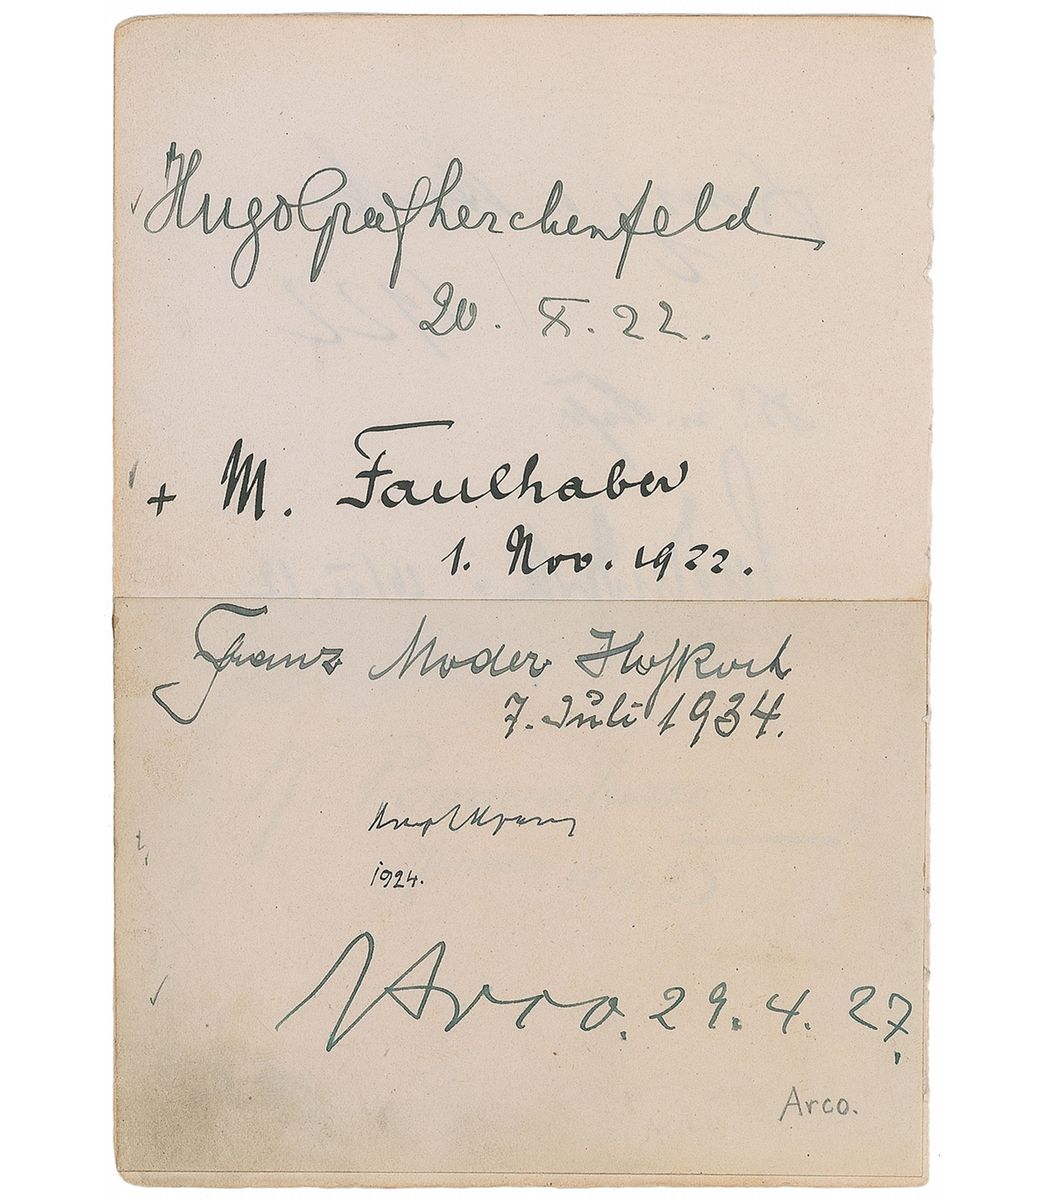 Hugo Graf Lerchenfeld
20. X. 22.
+ M. Faulhaber
1. Nov. 1922.
Franz Moder Hofkoch
7. Juli 1934.
1924.
Arco. 29. 4. 27.
Arco.